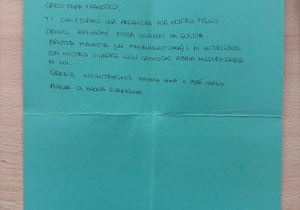 CARO PAPA FRANCESCO,
TI CHIEDIAMO UNA PREGHIERA PER NOSTRO FIGLIO
DANIEL AFFINCHÉ POSSA GUARIRE DA QUESTA
BRUTTA MALATTIA (UN MEDULLOBLASTOMA) E DI INTERCEDERE
CON NOSTRO SIGNORE GESÙ CRISTO CHE ABBIA MISERICORDIA
DI LUI.
GRAZIE INFINITAMENTE MAMMA ANNA E PAPÀ CARLO
AUGURI DI BUONA GUARIGIONE